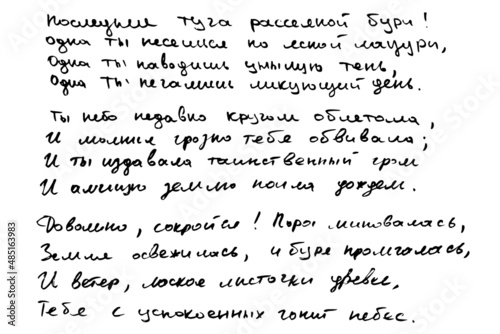 Последняя туча рассеяной бури!
Одна ты несешься по ясной лазури,
Одна ты наводишь унылую тень,
Одна ты печалишь ликующий день.
Ты небо недавно кругом облегала,
И молния грозно тебя обвивала;
И ты издавала таинственный гром
И алчную землю поила дождем.
Довольно, сокройся! Пора миновалась,
Земля освежилась, и буря промчалась,
И ветер, лаская листочки древес,
Тебя с успокоенных гонит небес.
Adobe Stock | #485163983